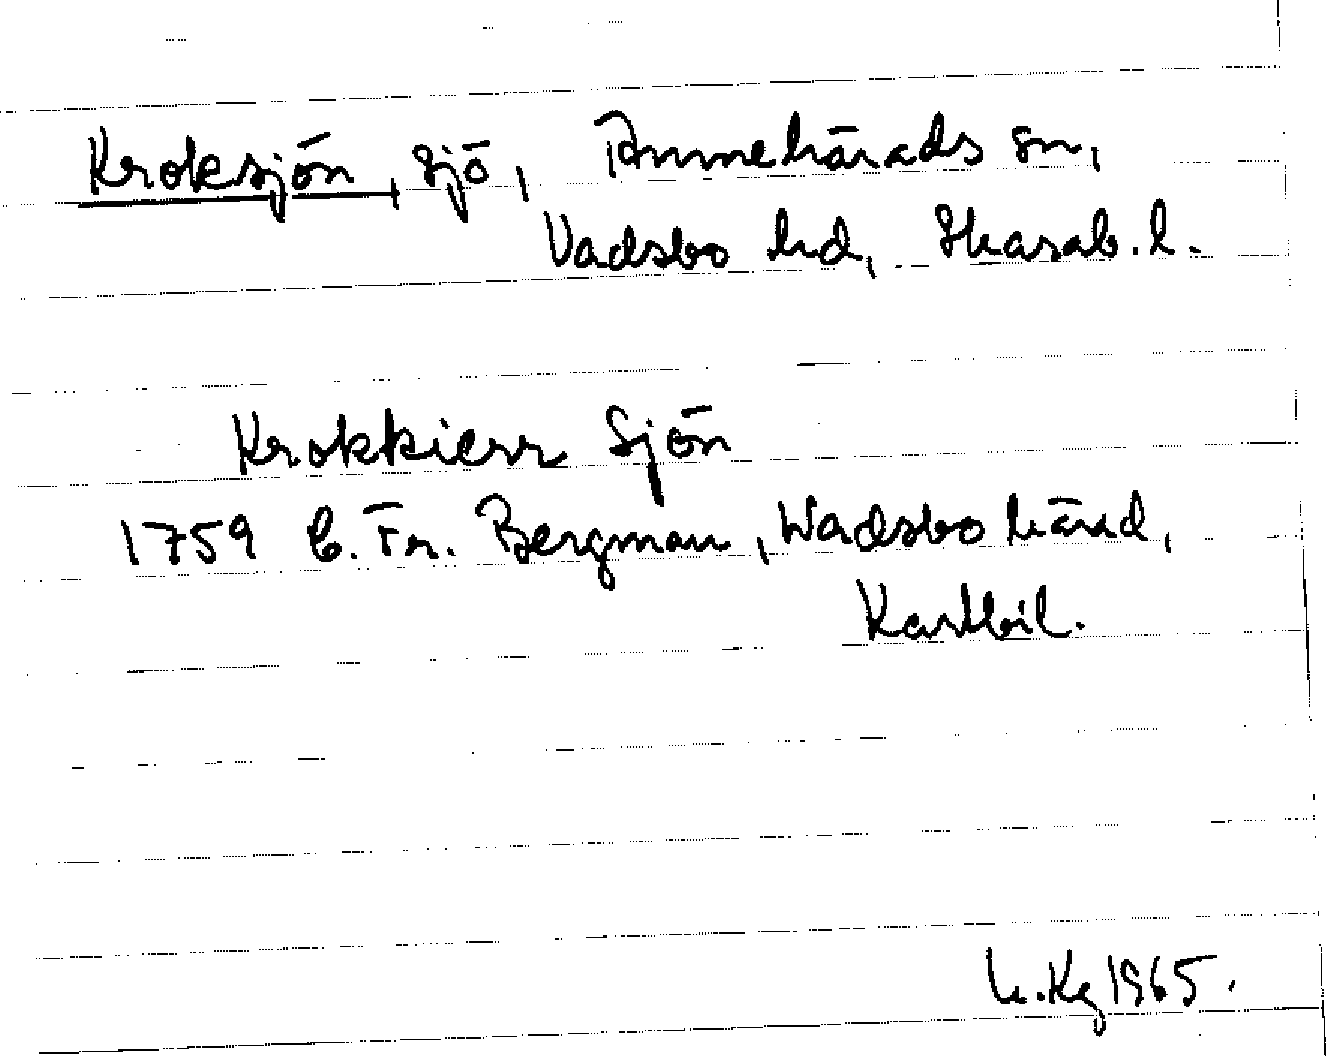 Kroksjön, sjö, Amnehärads sn,
Vadsbo hd, Skarab. l.
Krokkierr Sjön
1759 C. Fr. Bergman, Wadsbo härad,
Kartbil.
1965.